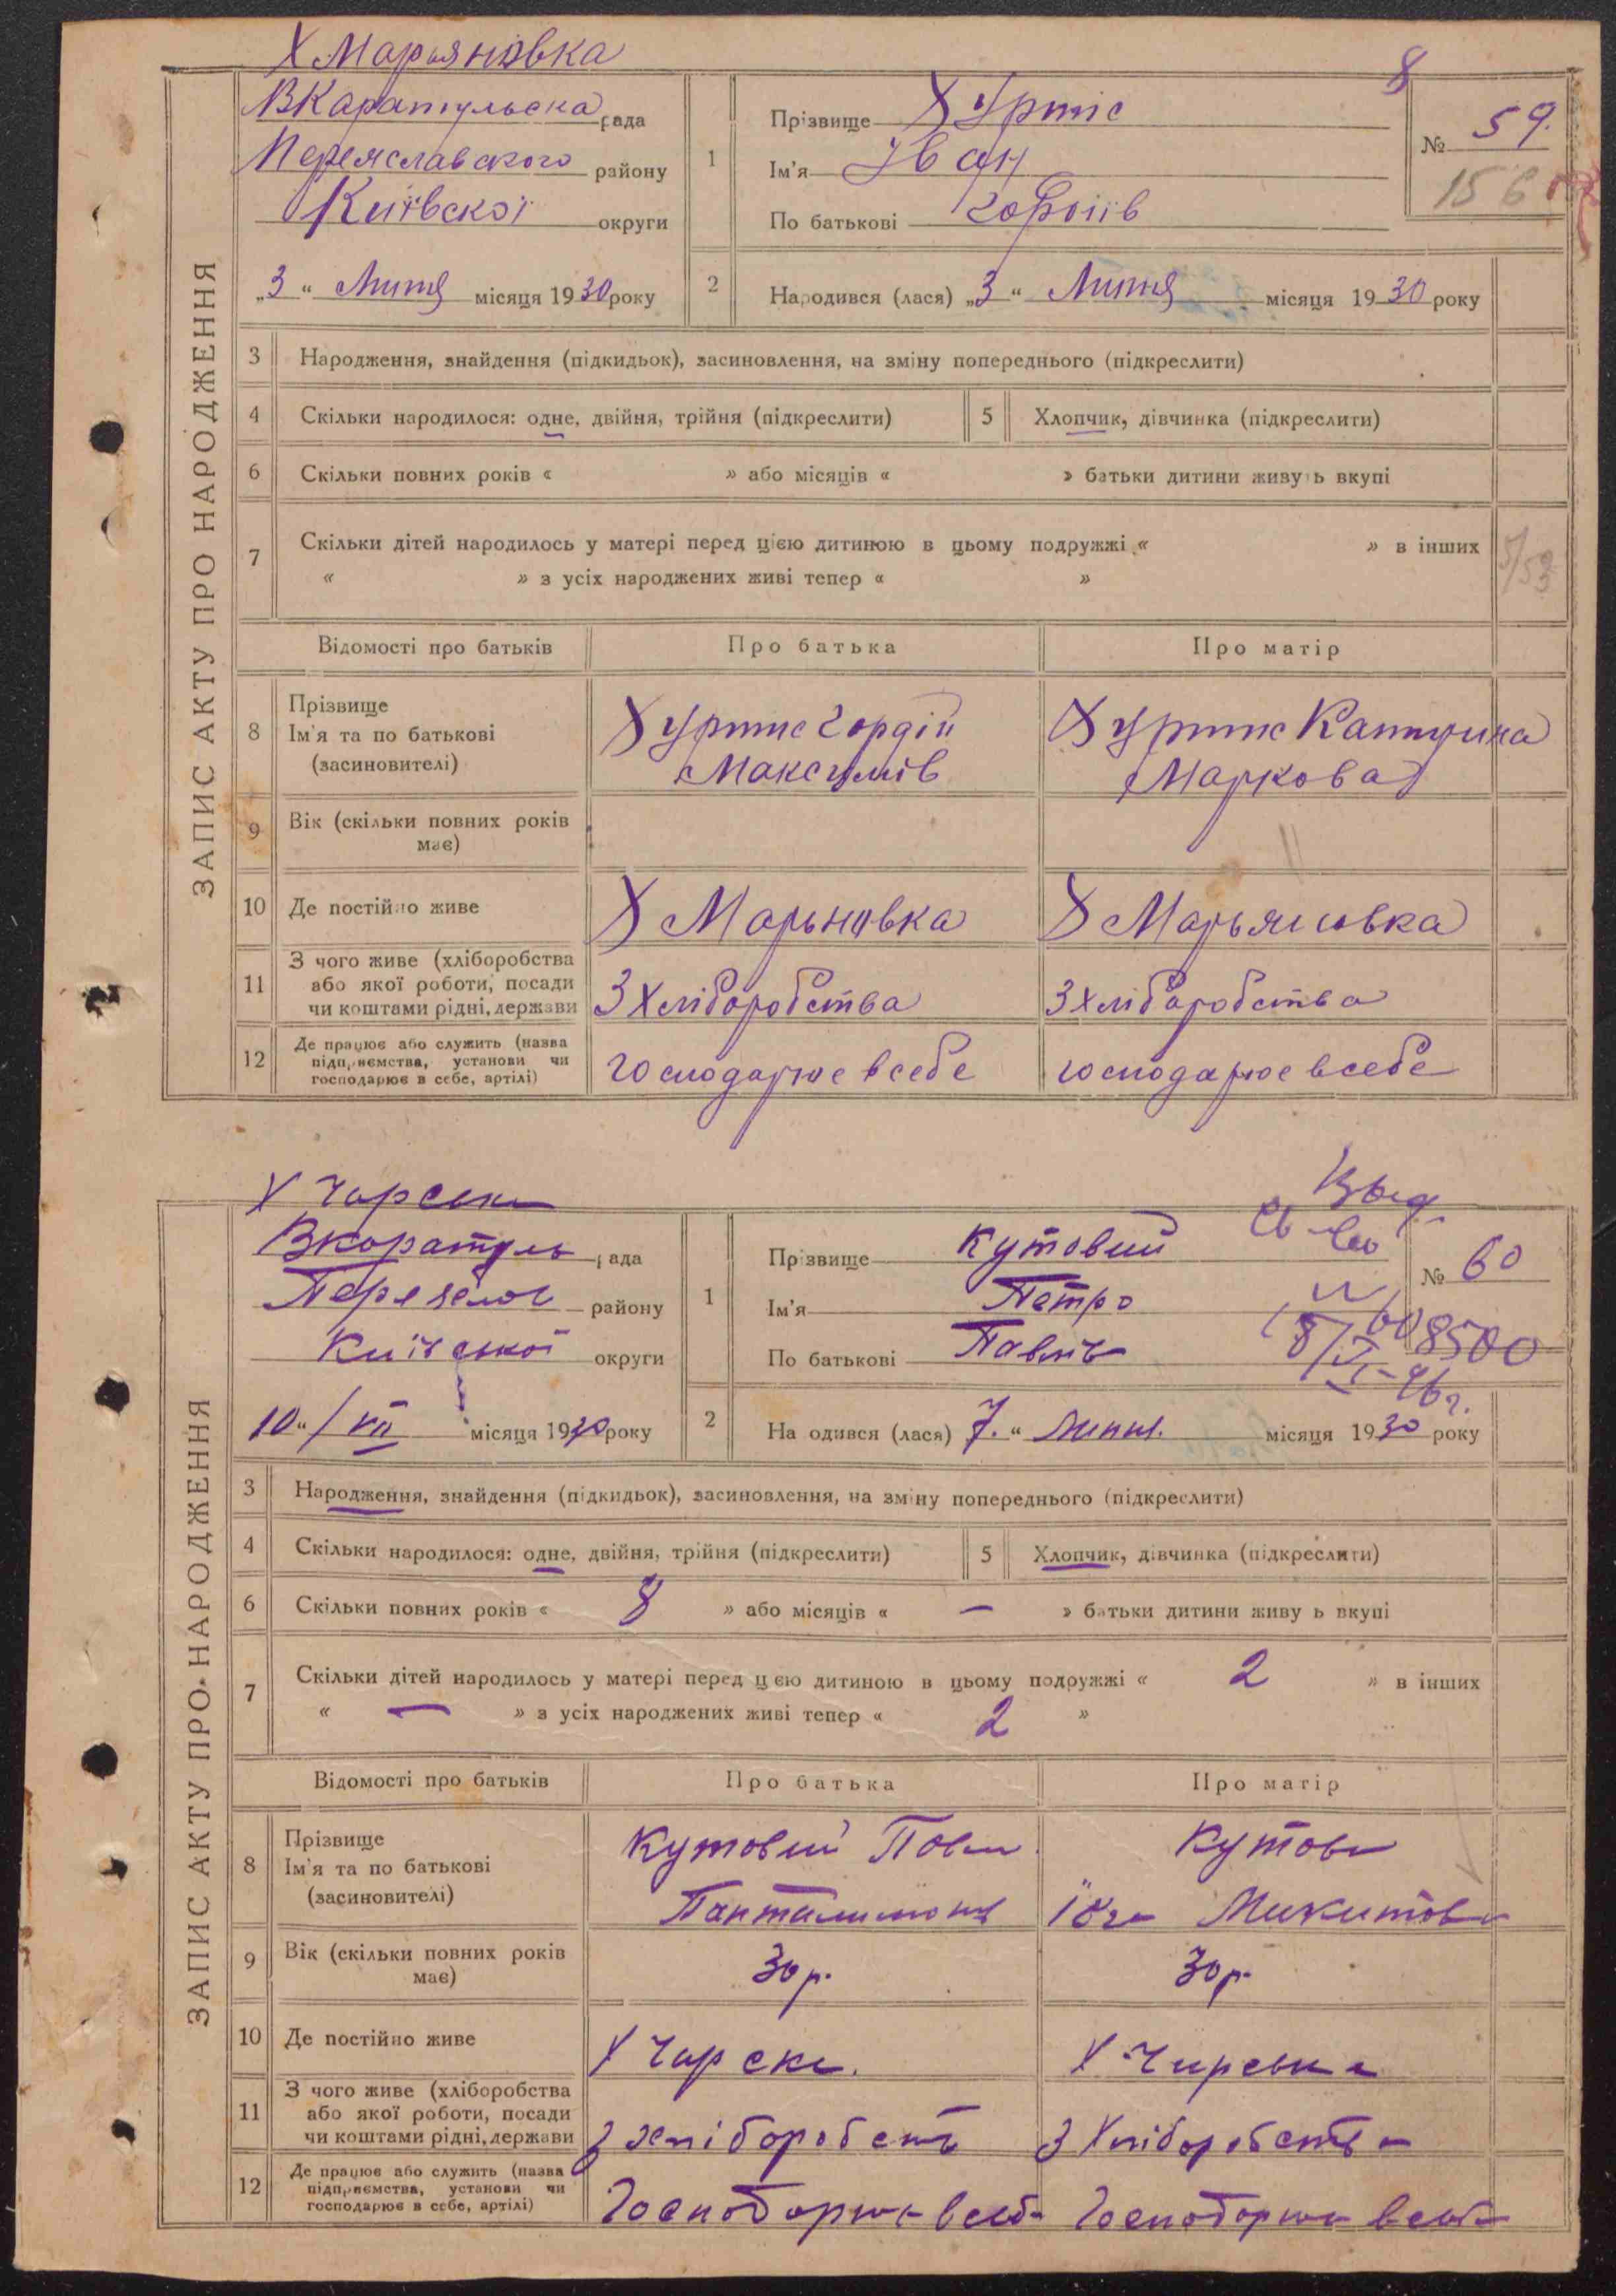 Х Марьяновка
8
ЗАПИС АКТУ ПРО НАРОДЖЕННЯ
ВКаратульска рада
Переяславского району
Київскої округи
„3“ Липня місяця 1930 року
1
Прізвище Хуртіс
Ім'я Іван
По батькові Гордіїв
№ 59.
156
2
Народився (лася) „3“ Липня місяця 1930 року
3 Народження, знайдення (підкидьок), засиновлення, на зміну попереднього (підкреслити)
4 Скільки народилося: одне, двійня, трійня (підкреслити) 5 Хлопчик, дівчинка (підкреслити)
6 Скільки повних років « » або місяців « » батьки дитини живуть вкупі
7 Скільки дітей народилось у матері перед цією дитиною в цьому подружжі « » в інших
« » з усіх народжених живі тепер « »
5/53
Відомості про батьків Про батька Про матір
8 Прізвище
Ім'я та по батькові
(засиновителі)
Хуртис Гордій
Максимів
Хуртис Катирина
Маркова
9 Вік (скільки повних років
має)
10 Де постійно живе Х Марьновка Х Марьяновка
11 З чого живе (хліборобства
або якої роботи, посади
чи коштами рідні, держави
З Хліборобства З хліборобства
12 Де працює або служить (назва
підприємства, установи чи
господарює в себе, артілі)
господарює в себе господарює в себе
Х Чирське
ЗАПИС АКТУ ПРО НАРОДЖЕННЯ
Вкоратуль рада
Переяслов району
Київської округи
10“/VII місяця 1930 року
1
Прізвище Кутовий
Ім'я Петро
По батькові Павлів
Выд
св-во
№ 60
8500
8/VI-46г.
2
Народився (лася) 7.“ Липня. місяця 1930 року
3 Народження, знайдення (підкидьок), засиновлення, на зміну попереднього (підкреслити)
4 Скільки народилося: одне, двійня, трійня (підкреслити) 5 Хлопчик, дівчинка (підкреслити)
6 Скільки повних років « 8 » або місяців « — » батьки дитини живуть вкупі
7 Скільки дітей народилось у матері перед цією дитиною в цьому подружжі « 2 » в інших
« — » з усіх народжених живі тепер « 2 »
Відомості про батьків Про батька Про матір
8 Прізвище
Ім'я та по батькові
(засиновителі)
Кутовий Павло
Панталимонів
Кутова
Микитова
9 Вік (скільки повних років
має)
30 р. 30 р.
10 Де постійно живе Х Чирске. Х Чирське
11 З чого живе (хліборобства
або якої роботи, посади
чи коштами рідні, держави
З хліборобств З Хліборобства
12 Де працює або служить (назва
підприємства, установи чи
господарює в себе, артілі)
Господорює в себе Господорює в себе